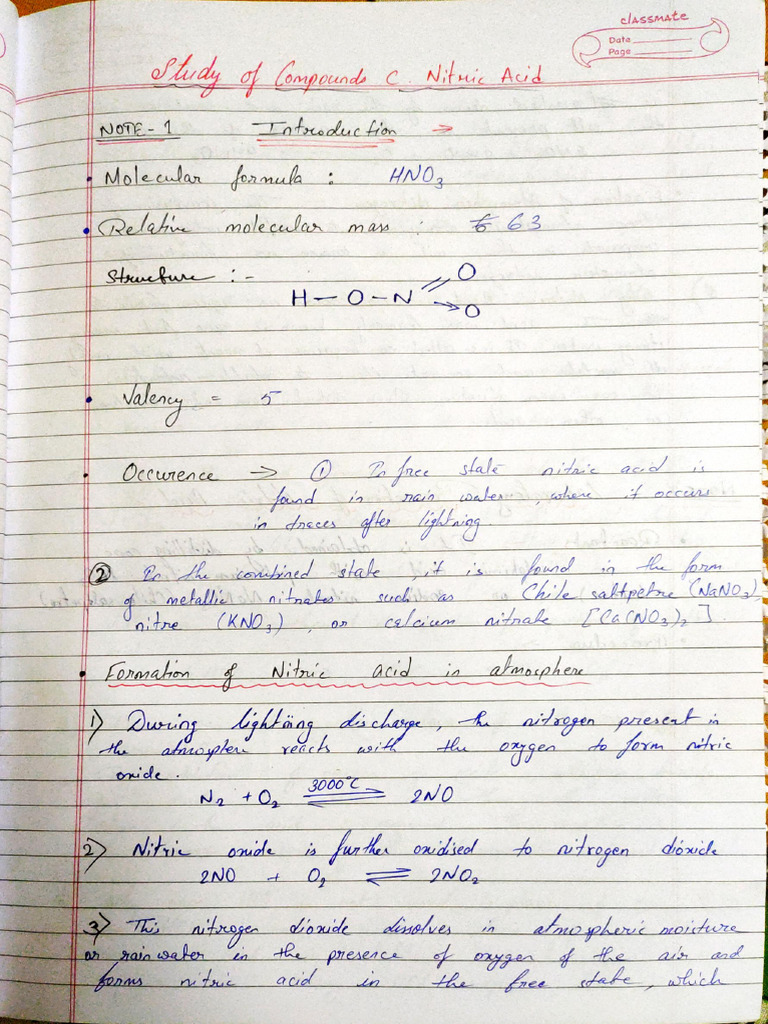 classmate
Date
Page
Study of Compounds C. Nitric Acid
NOTE-1 Introduction →
• Molecular formula : HNO₃
• Relative molecular mass : 63
Structure :-
H – O – N
O
O
• Valency = 5
• Occurence → ① In free state nitric acid is
found in rain water, where it occurs
in traces after lightning
② In the combined state, it is found in the form
of metallic nitrates such as Chile saltpetre (NaNO₃)
nitre (KNO₃), or calcium nitrate [Ca(NO₃)₂].
• Formation of Nitric acid in atmosphere
1) During lightning discharge, the nitrogen present in
the atmosptere reacts with the oxygen to form nitric
oxide.
3000°C
N₂ + O₂ ⇌ 2NO
2) Nitric oxide is further oxidised to nitrogen dioxide
2NO + O₂ ⇌ 2NO₂
3) This nitrogen dioxide dissolves in atmospheric moisture
or rain water in the presence of oxygen of the air and
forms nitric acid in the free state, which